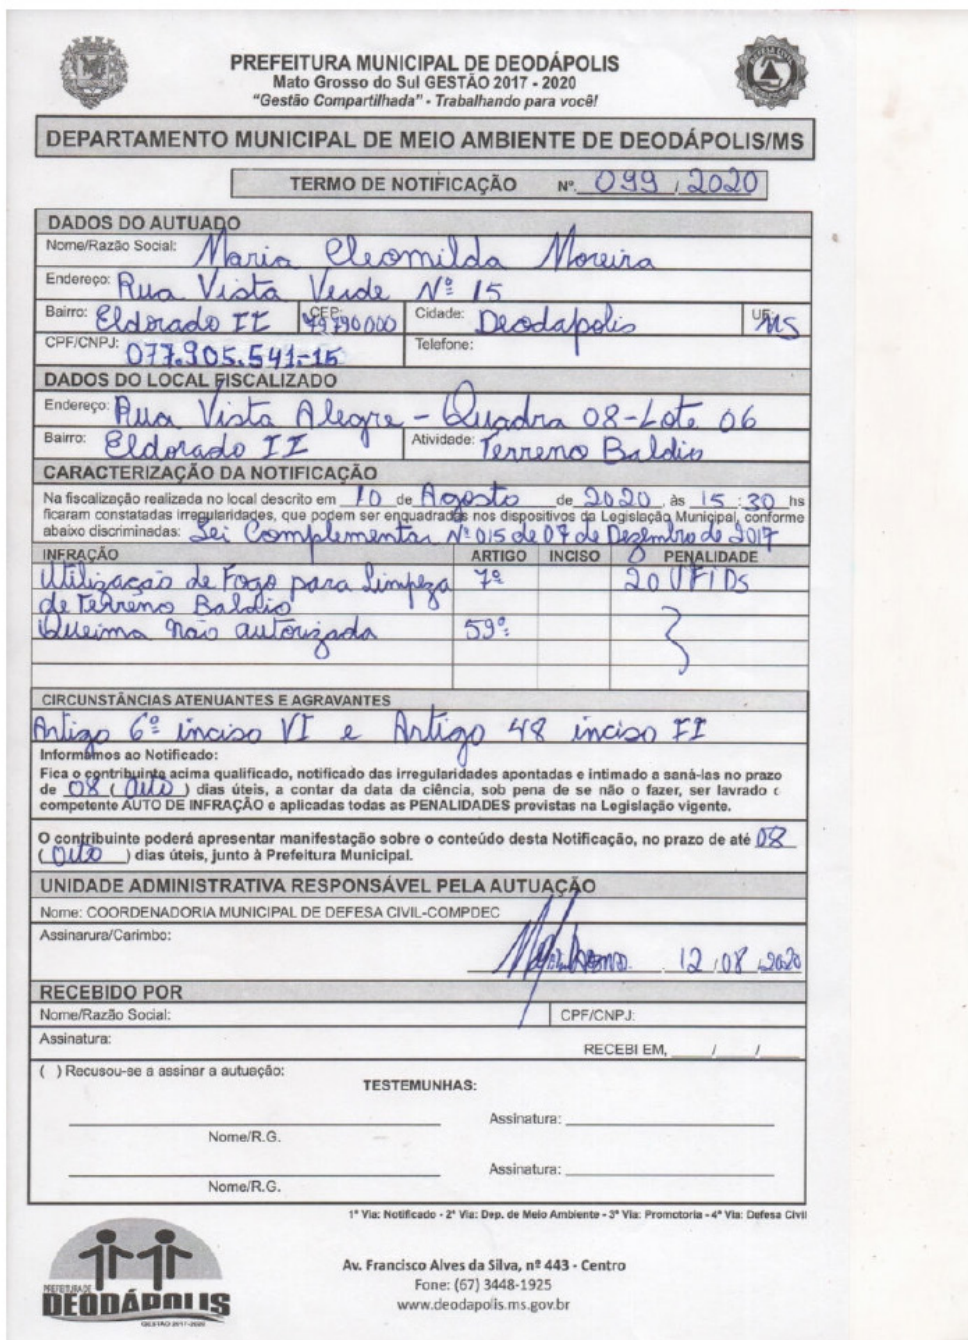 PREFEITURA MUNICIPAL DE DEODÁPOLIS
Mato Grosso do Sul GESTÃO 2017 - 2020
"Gestão Compartilhada" - Trabalhando para você!
DEFESA CIVIL
DEPARTAMENTO MUNICIPAL DE MEIO AMBIENTE DE DEODÁPOLIS/MS
TERMO DE NOTIFICAÇÃO Nº. 099 / 2020
DADOS DO AUTUADO
Nome/Razão Social: Maria Cleomilda Moreira
Endereço: Rua Vista Verde Nº 15
Bairro: Eldorado II CEP: 79790000 Cidade: Deodapolis UF: MS
CPF/CNPJ: 077.905.541-15 Telefone:
DADOS DO LOCAL FISCALIZADO
Endereço: Rua Vista Alegre - Quadra 08-Lote 06
Bairro: Eldorado II Atividade: Terreno Baldio
CARACTERIZAÇÃO DA NOTIFICAÇÃO
Na fiscalização realizada no local descrito em 10 de Agosto de 2020, às 15:30 hs
ficaram constatadas irregularidades, que podem ser enquadradas nos dispositivos da Legislação Municipal, conforme
abaixo discriminadas: Lei Complementar Nº 015 de 07 de Dezembro de 2017
INFRAÇÃO ARTIGO INCISO PENALIDADE
Utilização de Fogo para Limpeza 7º 20 UFIDs
de Terreno Baldio
Queima não autorizada 59º
CIRCUNSTÂNCIAS ATENUANTES E AGRAVANTES
Artigo 6º inciso VI e Artigo 48 inciso II
Informamos ao Notificado:
Fica o contribuinte acima qualificado, notificado das irregularidades apontadas e intimado a saná-las no prazo
de 08 ( oito ) dias úteis, a contar da data da ciência, sob pena de se não o fazer, ser lavrado c
competente AUTO DE INFRAÇÃO e aplicadas todas as PENALIDADES previstas na Legislação vigente.
O contribuinte poderá apresentar manifestação sobre o conteúdo desta Notificação, no prazo de até 08
( oito ) dias úteis, junto à Prefeitura Municipal.
UNIDADE ADMINISTRATIVA RESPONSÁVEL PELA AUTUAÇÃO
Nome: COORDENADORIA MUNICIPAL DE DEFESA CIVIL-COMPDEC
Assinarura/Carimbo:
12 / 08 / 2020
RECEBIDO POR
Nome/Razão Social: CPF/CNPJ:
Assinatura: RECEBI EM, ____/____/____
( ) Recusou-se a assinar a autuação:
TESTEMUNHAS:
Assinatura:
Nome/R.G.
Assinatura:
Nome/R.G.
1ª Via: Notificado - 2ª Via: Dep. de Meio Ambiente - 3ª Via: Promotoria - 4ª Via: Defesa Civil
PREFEITURA DE
DEODÁPOLIS
GESTÃO 2017-2020
Av. Francisco Alves da Silva, nº 443 - Centro
Fone: (67) 3448-1925
www.deodapolis.ms.gov.br